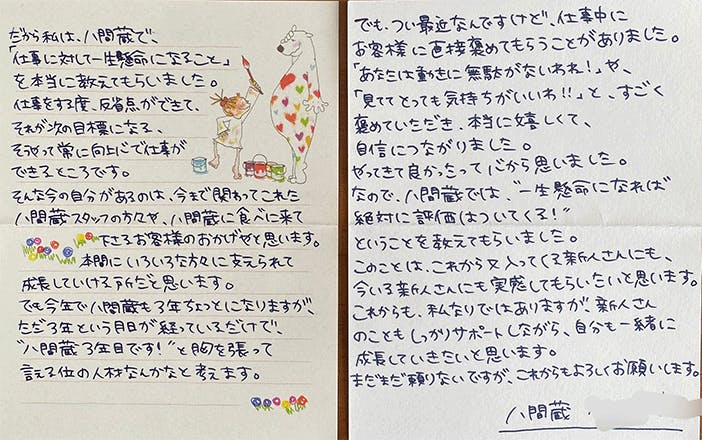 だから私は、八間蔵で、
「仕事に対して一生懸命になること」
を本当に教えてもらいました。
仕事をする度、反省点ができて、
それが次の目標になる、
そうやって常に向上心で仕事が
できるところです。
そんな今の自分があるのは、今まで関わってこれた
八間蔵スタッフの方々や、八間蔵に食べに来て
下さるお客様のおかげやと思います。
本間にいろいろな方々に支えられて
成長していける所だと思います。
でも今年で八間蔵も3年ちょっとになりますが、
ただ3年という月日が経っているだけで、
"八間蔵3年目です!"と胸を張って
言える位の人材なんかなと考えます。
でも、つい最近なんですけど、仕事中に
お客様に直接褒めてもらうことがありました。
「あなたは動きに無駄がないわね!」や、
「見ててとっても気持ちがいいわ!!」と、すごく
褒めていただき、本当に嬉しくて、
自信につながりました。
やってきて良かったって心から思いました。
なので、八間蔵では、"一生懸命になれば
絶対に評価はついてくる!"
ということを教えてもらいました。
このことは、これから又入ってくる新人さんにも、
今いる新人さんにも実感してもらいたいと思います。
これからも、私なりではありますが、新人さん
のこともしっかりサポートしながら、自分も一緒に
成長していきたいと思います。
まだまだ頼りないですが、これからもよろしくお願いします。
八間蔵